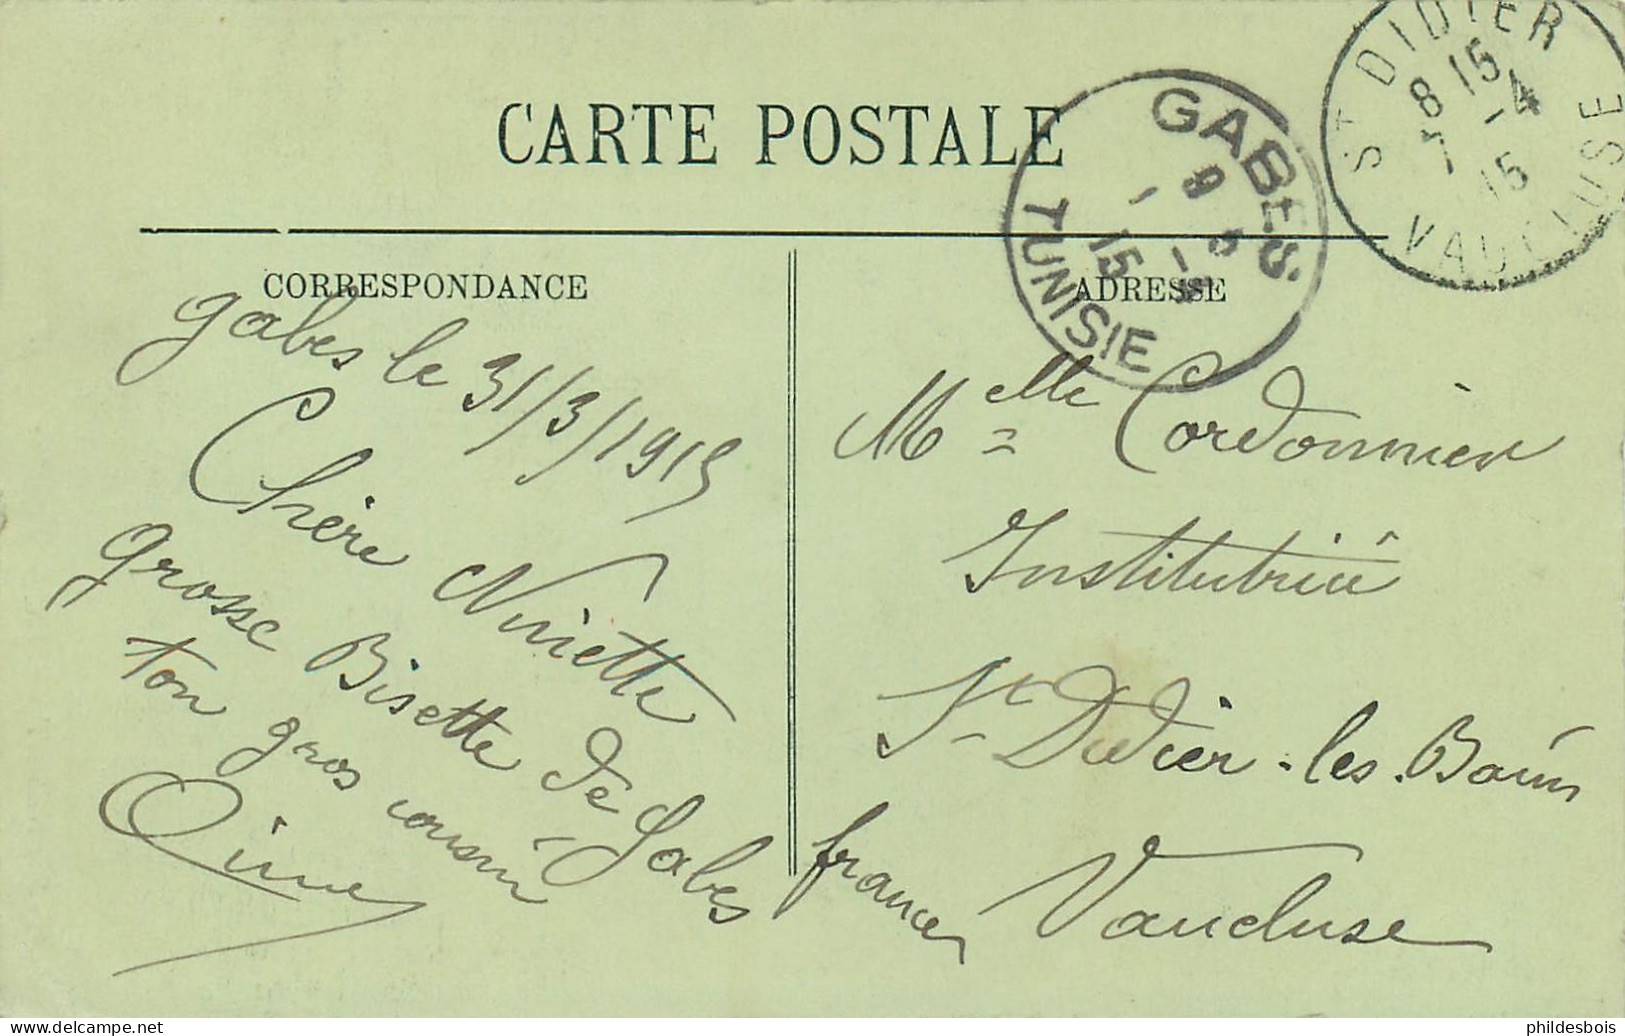 CARTE POSTALE
CORRESPONDANCE
ADRESSE
GABES
TUNISIE
ST DIDIER
8 15
7 -4
15
VAUCLUSE
Gabes le 31/3/1915
Chère Niniette
grosse Bisette de Gabes
ton gros cousin
Aimé
Melle Cordonnier
Institutrice
St Didier-les-Bains
Vaucluse
france
phildesbois